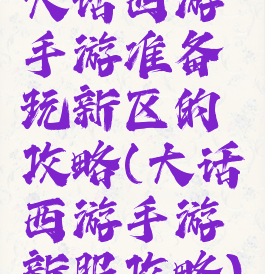 大话西游
手游准备
玩新区的
攻略(大话
西游手游
新服攻略)